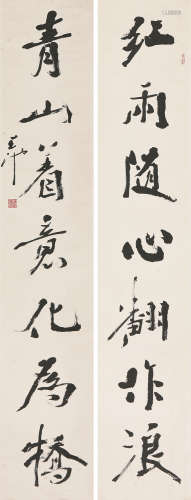 红雨随心翻作浪
青山着意化为桥